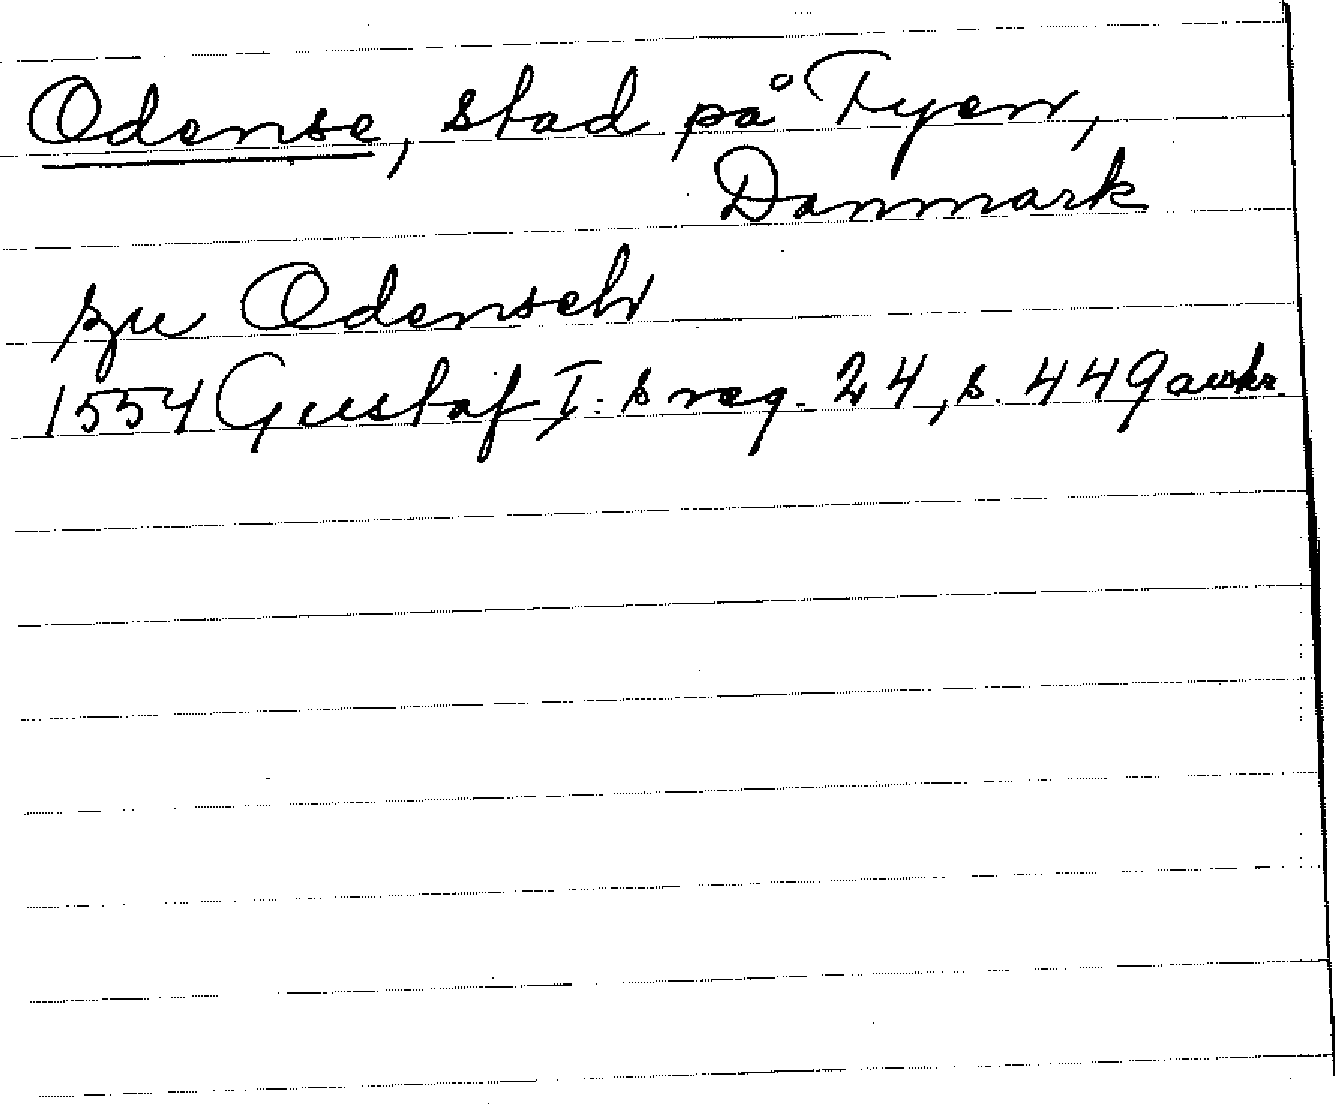 Odense, stad på Fyen,
Danmark
zu Odenseh
1554 Gustaf I:s reg. 24, s. 449 avskr.